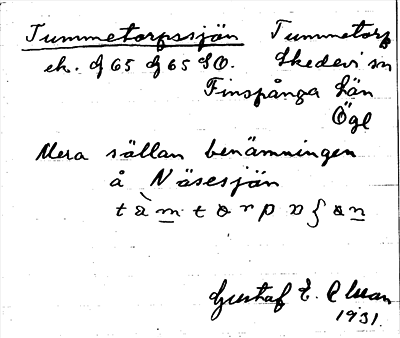 Tummetorpssjön Tummetorp
ek. bl 65 bl 65 SO. Skedevi sn
Finspånga län
Ögl
Mera sällan benämningen
å Näsesjön
Gustaf E. Olsson
1931.